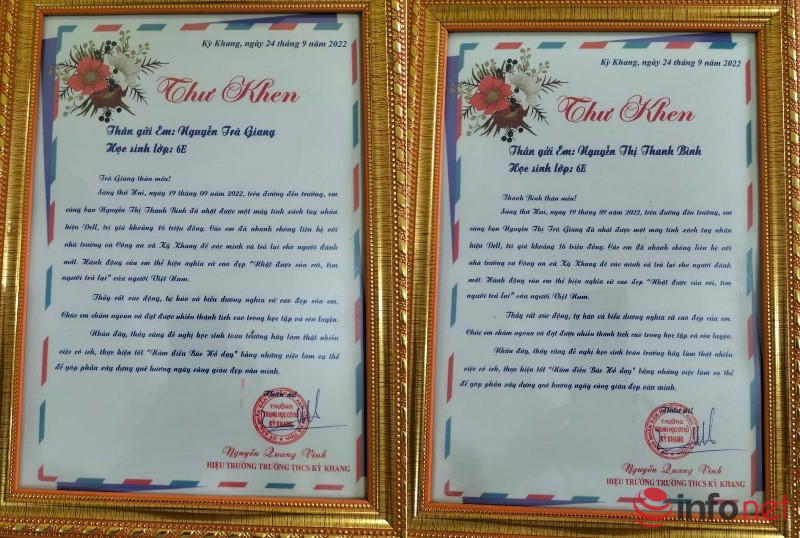 Kỳ Khang, ngày 24 tháng 9 năm 2022
Thư Khen
Thân gửi Em: Nguyễn Trà Giang
Học sinh lớp: 6E
Trà Giang thân mến!
Sáng thứ Hai, ngày 19 tháng 09 năm 2022, trên đường đến trường, em
cùng bạn Nguyễn Thị Thanh Bình đã nhặt được một máy tính xách tay nhãn
hiệu Dell, trị giá khoảng 16 triệu đồng. Các em đã nhanh chóng liên hệ với
nhà trường và Công an xã Kỳ Khang để xác minh và trả lại cho người đánh
mất. Hành động của em thể hiện nghĩa cử cao đẹp "Nhặt được của rơi, tìm
người trả lại" của người Việt Nam.
Thầy rất xúc động, tự hào và biểu dương nghĩa cử cao đẹp của em.
Chúc em chăm ngoan và đạt được nhiều thành tích cao trong học tập và rèn luyện.
Nhân đây, thầy cũng đề nghị học sinh toàn trường hãy làm thật nhiều
việc có ích, thực hiện tốt "Năm điều Bác Hồ dạy" bằng những việc làm cụ thể
để góp phần xây dựng quê hương ngày càng giàu đẹp văn minh.
Thân ái!
TRƯỜNG
TRUNG HỌC CƠ SỞ
KỲ KHANG
Nguyễn Quang Vinh
HIỆU TRƯỞNG TRƯỜNG THCS KỲ KHANG
Kỳ Khang, ngày 24 tháng 9 năm 2022
Thư Khen
Thân gửi Em: Nguyễn Thị Thanh Bình
Học sinh lớp: 6E
Thanh Bình thân mến!
Sáng thứ Hai, ngày 19 tháng 09 năm 2022, trên đường đến trường, em
cùng bạn Nguyễn Trà Giang đã nhặt được một máy tính xách tay nhãn
hiệu Dell, trị giá khoảng 16 triệu đồng. Các em đã nhanh chóng liên hệ với
nhà trường và Công an xã Kỳ Khang để xác minh và trả lại cho người đánh
mất. Hành động của em thể hiện nghĩa cử cao đẹp "Nhặt được của rơi, tìm
người trả lại" của người Việt Nam.
Thầy rất xúc động, tự hào và biểu dương nghĩa cử cao đẹp của em.
Chúc em chăm ngoan và đạt được nhiều thành tích cao trong học tập và rèn luyện.
Nhân đây, thầy cũng đề nghị học sinh toàn trường hãy làm thật nhiều
việc có ích, thực hiện tốt "Năm điều Bác Hồ dạy" bằng những việc làm cụ thể
để góp phần xây dựng quê hương ngày càng giàu đẹp văn minh.
Thân ái!
TRƯỜNG
TRUNG HỌC CƠ SỞ
KỲ KHANG
Nguyễn Quang Vinh
HIỆU TRƯỞNG TRƯỜNG THCS KỲ KHANG
infonet